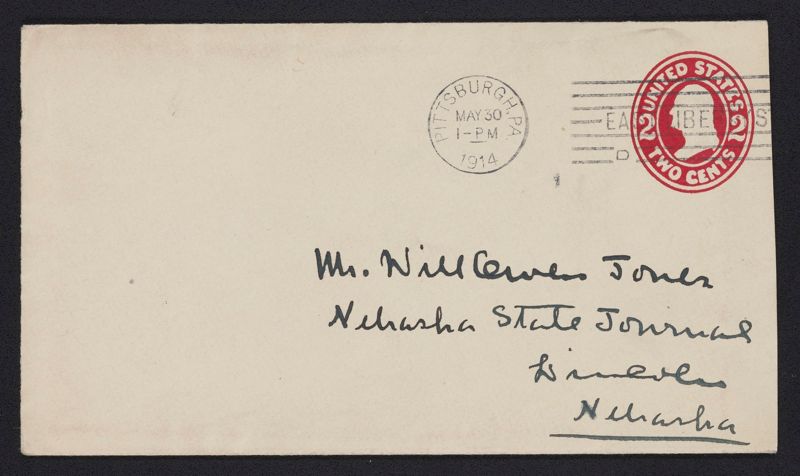 PITTSBURGH, PA.
MAY 30
1-PM
1914
UNITED STATES
2 2
TWO CENTS
Mr. Will Owens Jones
Nebraska State Journal
Lincoln
Nebraska